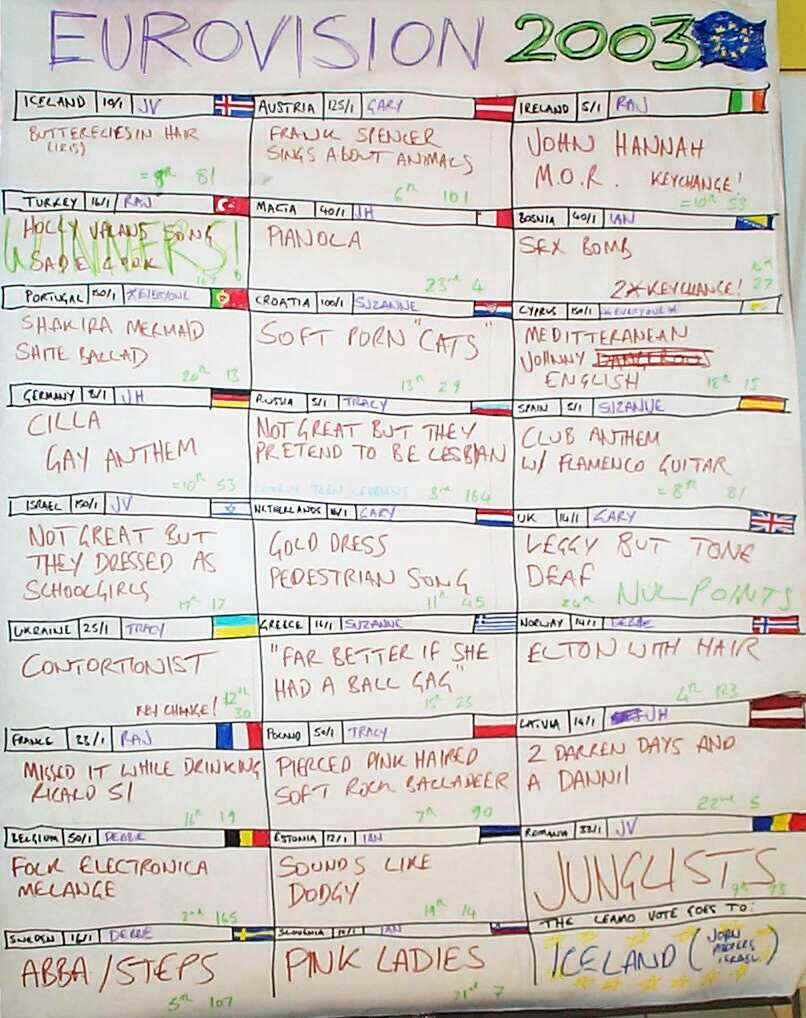 EUROVISION 2003
ICELAND 19/1 JV
BUTTERFLIES IN HAIR
(IRIS)
= 8th 81
AUSTRIA 125/1 GARY
FRANK SPENCER
SINGS ABOUT ANIMALS
6th 101
IRELAND 5/1 RAJ
JOHN HANNAH
M.O.R. KEYCHANGE!
=10th 53
TURKEY 16/1 RAJ
HOLLY VALANS SONG
SADE LOOK
WINNERS!
167
MALTA 40/1 JH
PIANOLA
23rd 4
BOSNIA 40/1 IAN
SEX BOMB
2X KEYCHANGE!
16th 27
PORTUGAL 150/1 *EVERYONE
SHAKIRA MERMAID
SHITE BALLAD
20th 13
CROATIA 100/1 SUZANNE
SOFT PORN "CATS"
13th 29
CYPRUS 150/1 *EVERYONE*
MEDITTERANEAN
JOHNNY DANGEROUS
ENGLISH
18th 15
GERMANY 8/1 JH
CILLA
GAY ANTHEM
=10th 53
RUSSIA 5/1 TRACY
NOT GREAT BUT THEY
PRETEND TO BE LESBIAN
TEEN LESBIANS 3rd 164
SPAIN 5/1 SUZANNE
CLUB ANTHEM
W/ FLAMENCO GUITAR
= 8th 81
ISRAEL 150/1 JV
NOT GREAT BUT
THEY DRESSED AS
SCHOOLGIRLS
19th 17
NETHERLANDS 16/1 GARY
GOLD DRESS
PEDESTRIAN SONG
11th 45
UK 14/1 GARY
LEGGY BUT TONE
DEAF
26th NUL POINTS
UKRAINE 25/1 TRACY
CONTORTIONIST
KEY CHANGE! 12th
30
GREECE 16/1 SUZANNE
"FAR BETTER IF SHE
HAD A BALL GAG"
15th 25
NORWAY 14/1 DEBBIE
ELTON WITH HAIR
4th 123
FRANCE 23/1 RAJ
MISSED IT WHILE DRINKING
RICARD 51
16th 19
POLAND 50/1 TRACY
PIERCED PINK HAIRED
SOFT ROCK BALLADEER
7th 90
LATVIA 14/1 JH
2 DARREN DAYS AND
A DANNII
22nd 5
BELGIUM 50/1 DEBBIE
FOLK ELECTRONICA
MELANGE
2nd 165
ESTONIA 12/1 IAN
SOUNDS LIKE
DODGY
19th 14
ROMANIA 33/1 JV
JUNGLISTS
9th 73
SWEDEN 16/1 DEBBIE
ABBA/STEPS
5th 107
SLOVENIA IAN
PINK LADIES
21st 7
THE LEAMO VOTE GOES TO:
ICELAND (JOHN
ISRAEL)